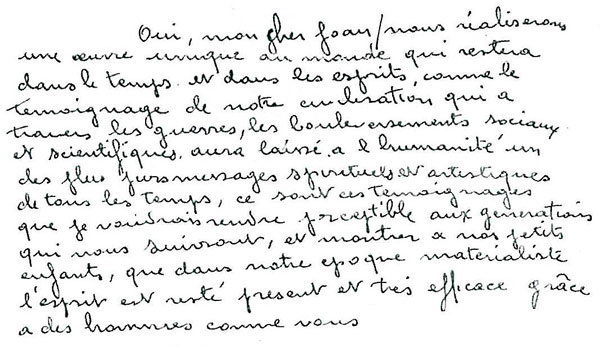 Oui, mon cher Joan/nous réaliserons
une œuvre unique au monde qui restera
dans le temps et dans les esprits, comme le
temoignage de notre civilisation qui a
travers les guerres, les bouleversements sociaux
et scientifiques. aura laissé. a l'humanité un
des plus purs messages spirituels et artistiques
de tous les temps, ce sont ces temoignages
que je voudrais rendre perceptible aux generations
qui nous suivront, et montrer a nos petits
enfants, que dans notre epoque materialiste
l'esprit est resté present et très efficace grâce
a des hommes comme vous